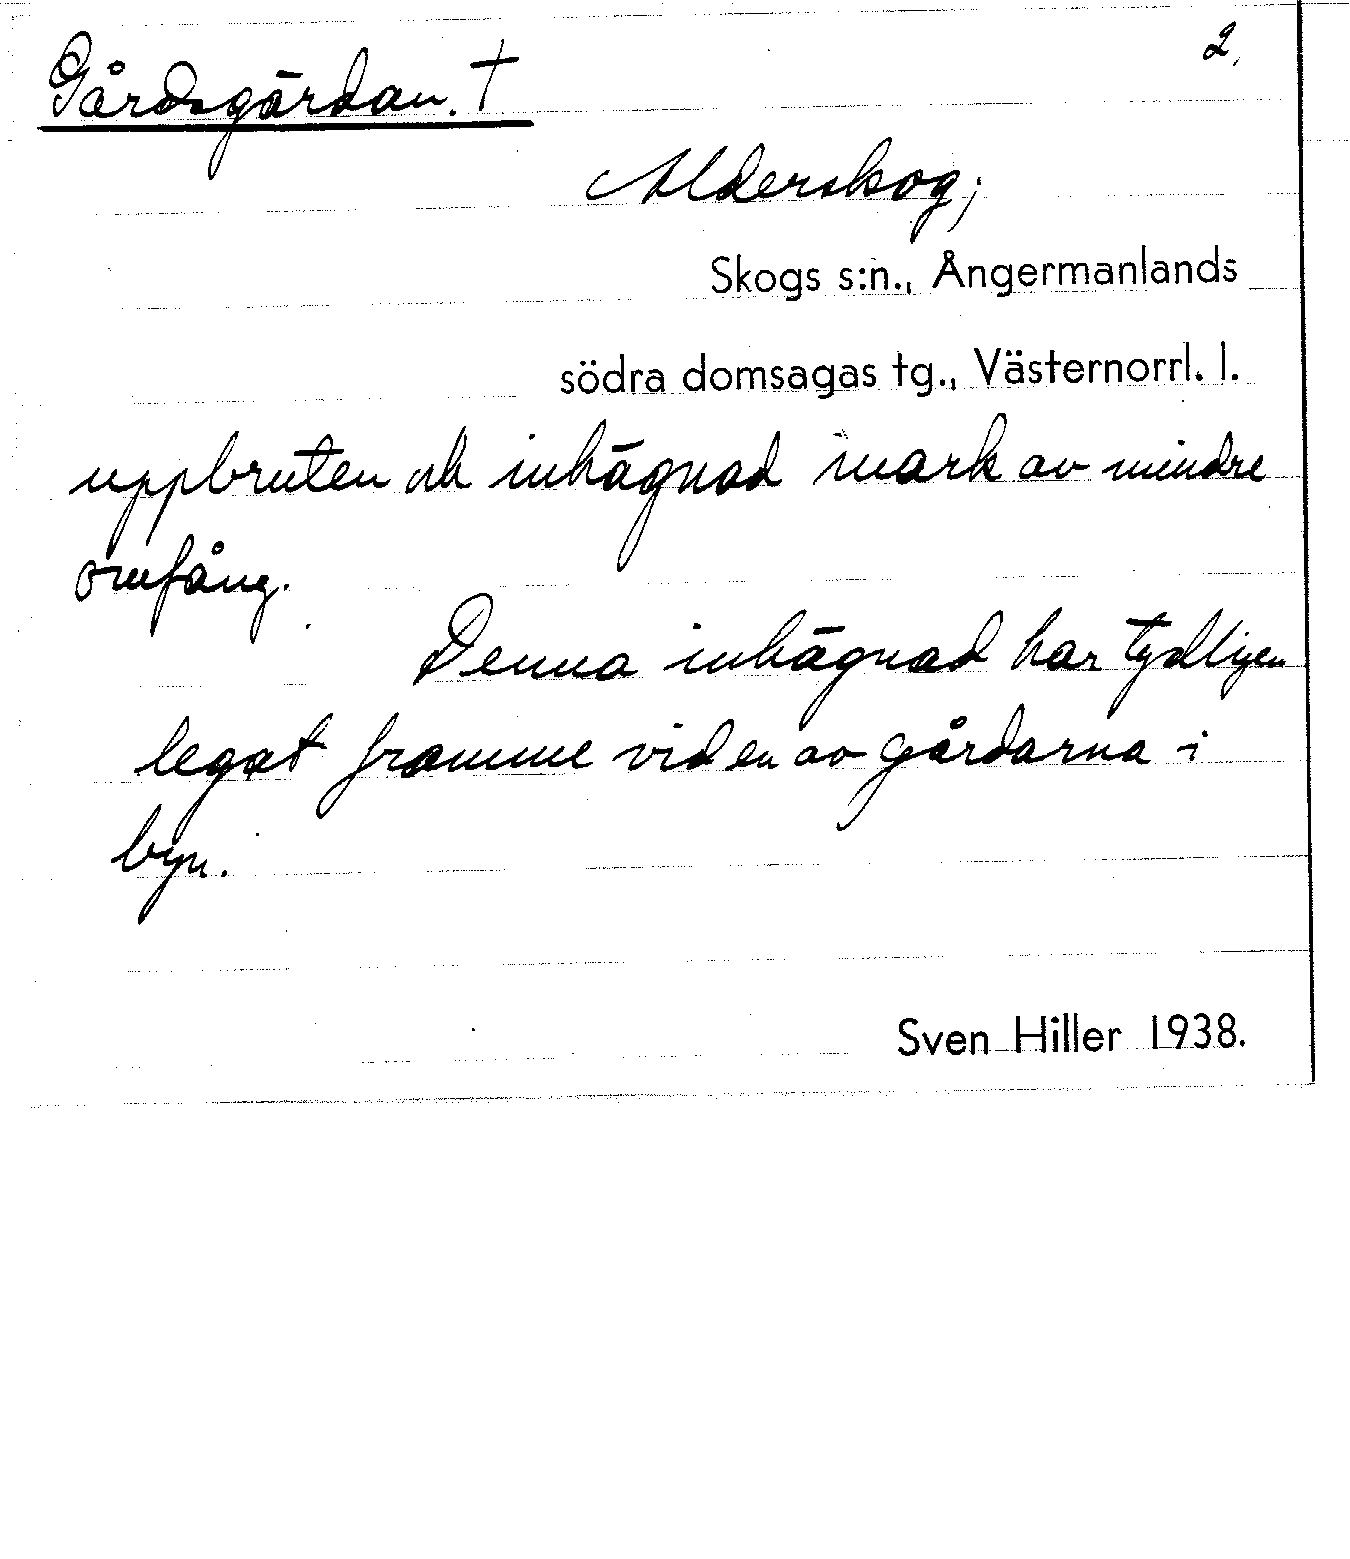 2.
Gårdsgärdan. †
Alderskog;
Skogs s:n., Ångermanlands
södra domsagas tg., Västernorrl. l.
uppbruten och inhägnad mark av mindre
omfång.
Denna inhägnad har tydligen
legat framme vid en av gårdarna i
byn.
Sven Hiller 1938.